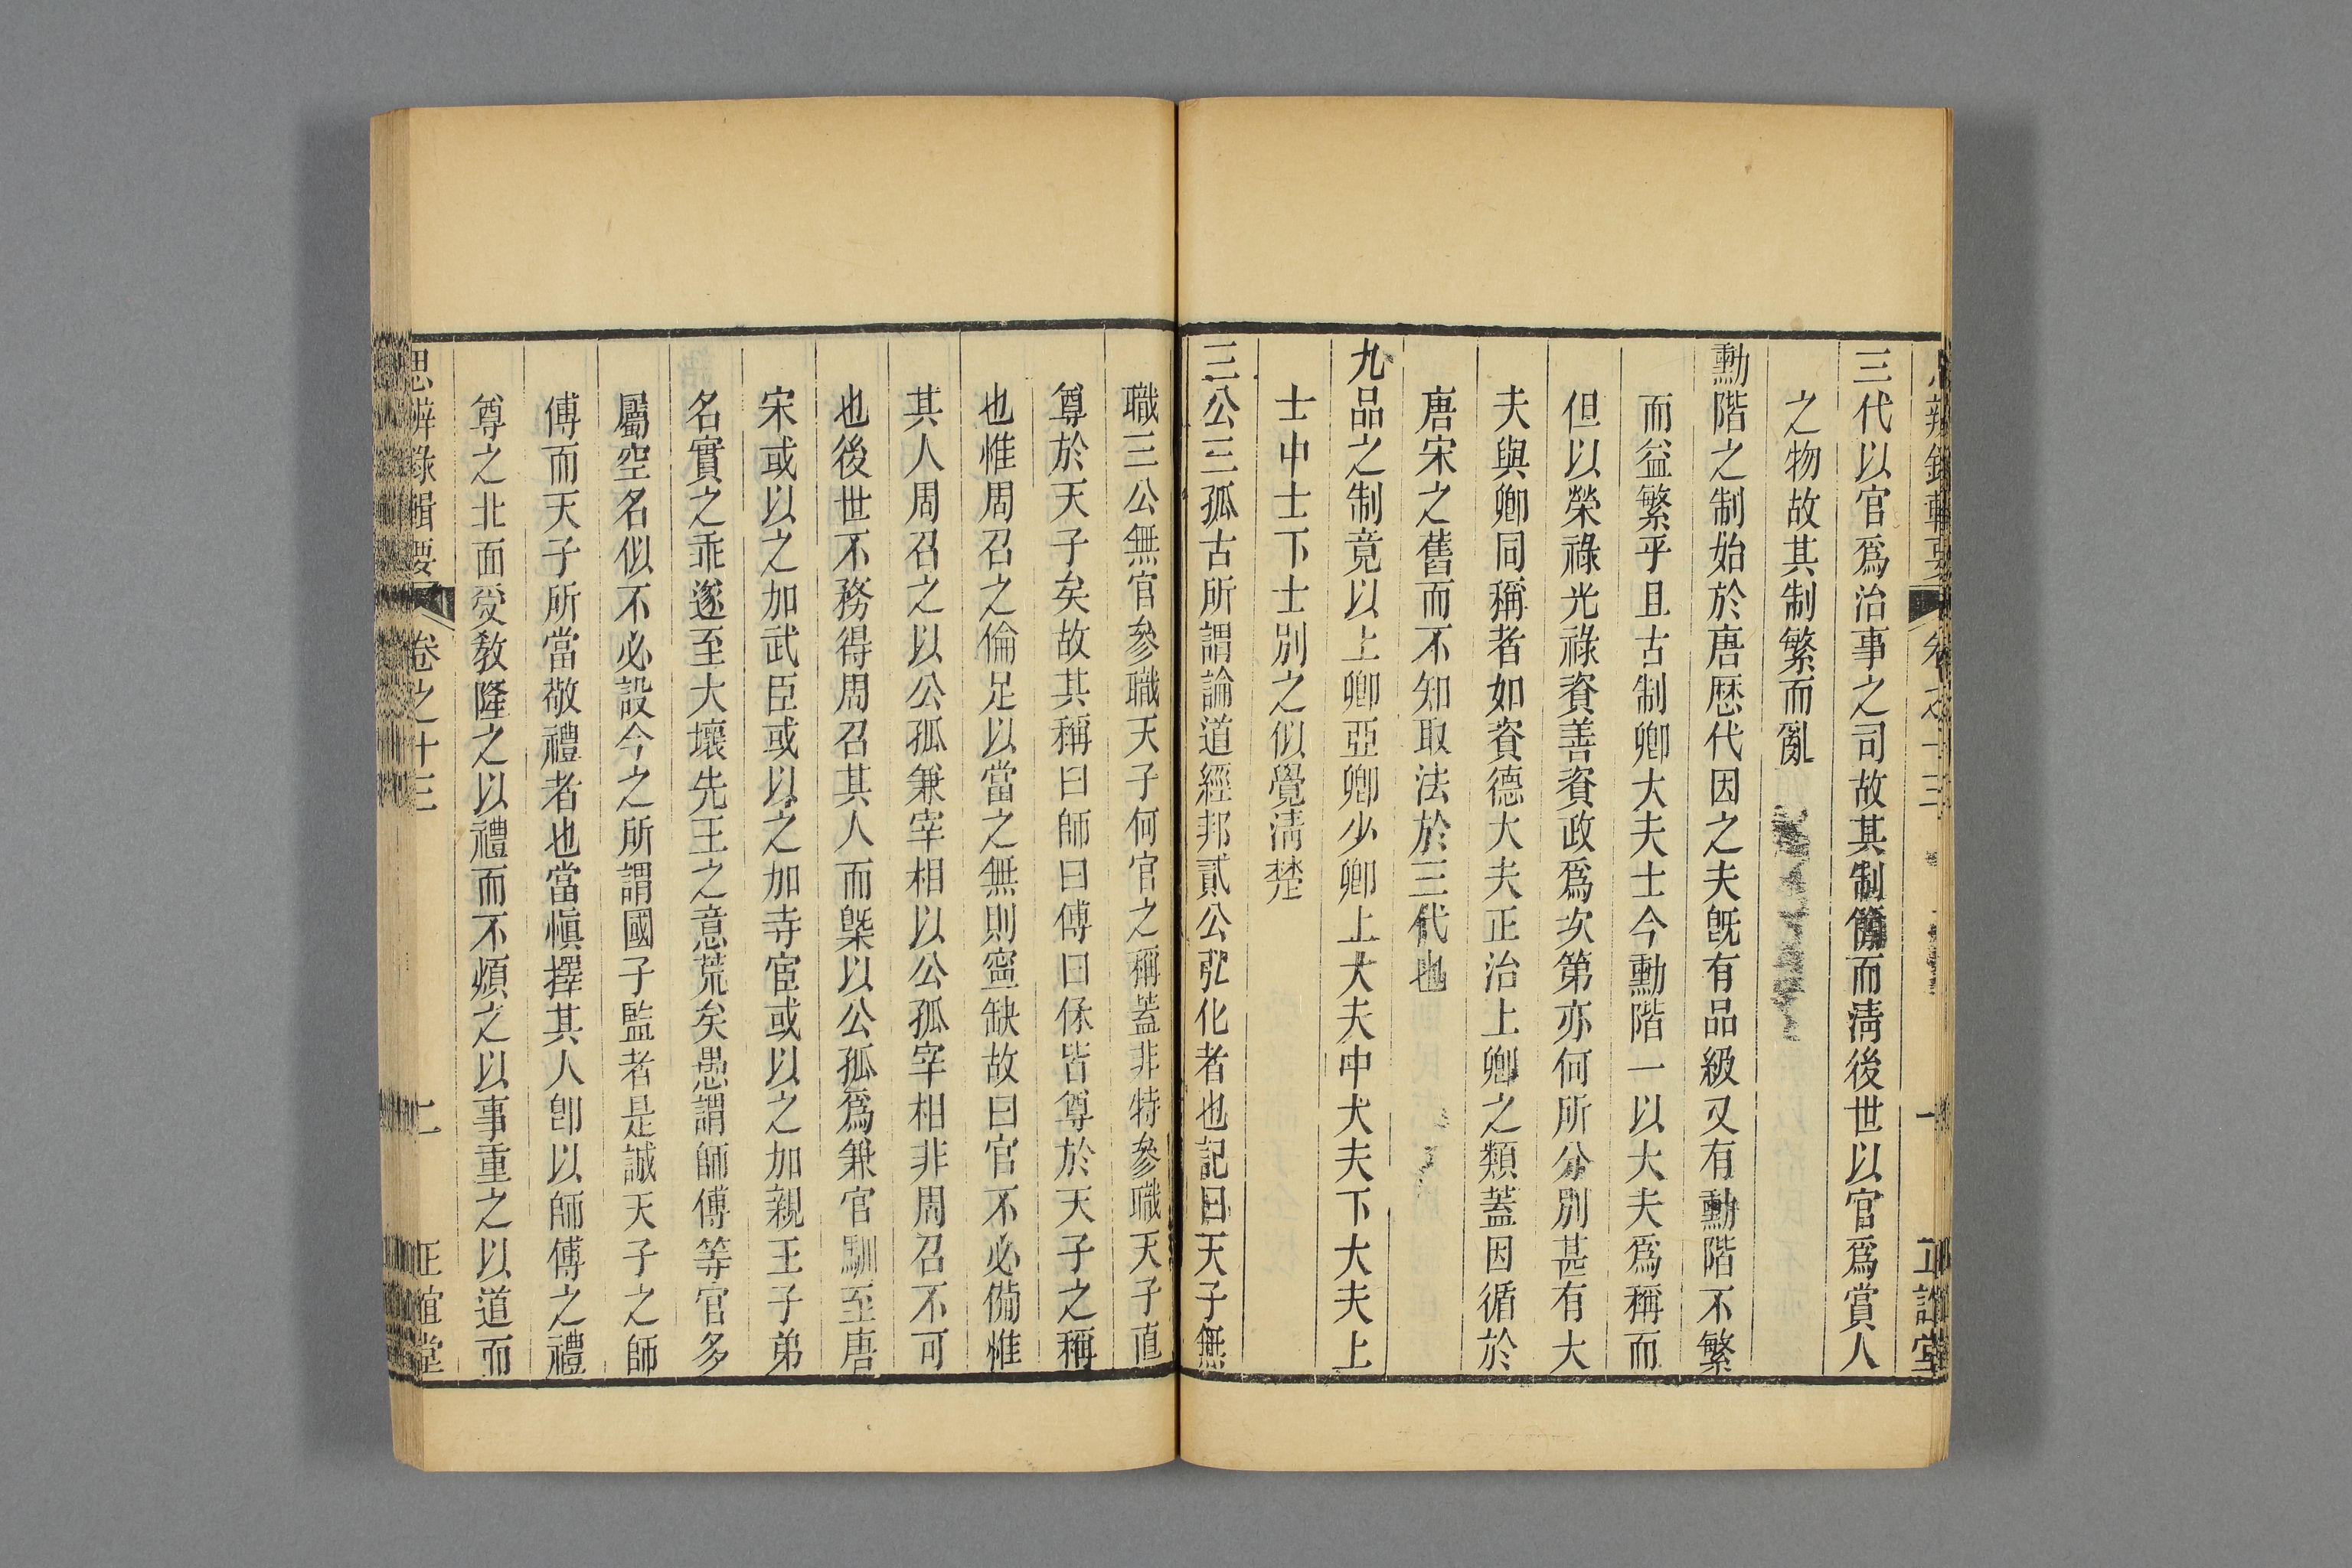 三代以官爲治事之司故其制簡而淸後世以官爲賞人
之物故其制繁而亂
勳階之制始於唐歴代因之夫旣有品級又有勳階不繁
而益繁乎且古制卿大夫士今勳階一以大夫爲稱而
但以榮祿光祿資善資政爲次第亦何所分別甚有大
夫與卿同稱者如資德大夫正治上卿之類蓋因循於
唐宋之舊而不知取法於三代也
九品之制竟以上卿亞卿少卿上大夫中大夫下大夫上
士中士下士別之似覺淸楚
三公三孤古所謂論道經邦貳公弘化者也記曰天子無
職三公無官參職天子何官之稱蓋非特參職天子直
尊於天子矣故其稱曰師曰傅曰保皆尊於天子之稱
也惟周召之倫足以當之無則寧缺故曰官不必備惟
其人周召之以公孤兼宰相以公孤宰相非周召不可
也後世不務得周召其人而槩以公孤爲兼官馴至唐
宋或以之加武臣或以之加寺宦或以之加親王子弟
名實之乖遂至大壞先王之意荒矣愚謂師傅等官多
屬空名似不必設今之所謂國子監者是誠天子之師
傅而天子所當敬禮者也當愼擇其人卽以師傅之禮
尊之北面受敎隆之以禮而不煩之以事重之以道而
思辨錄輯要 卷之十三 二 正誼堂